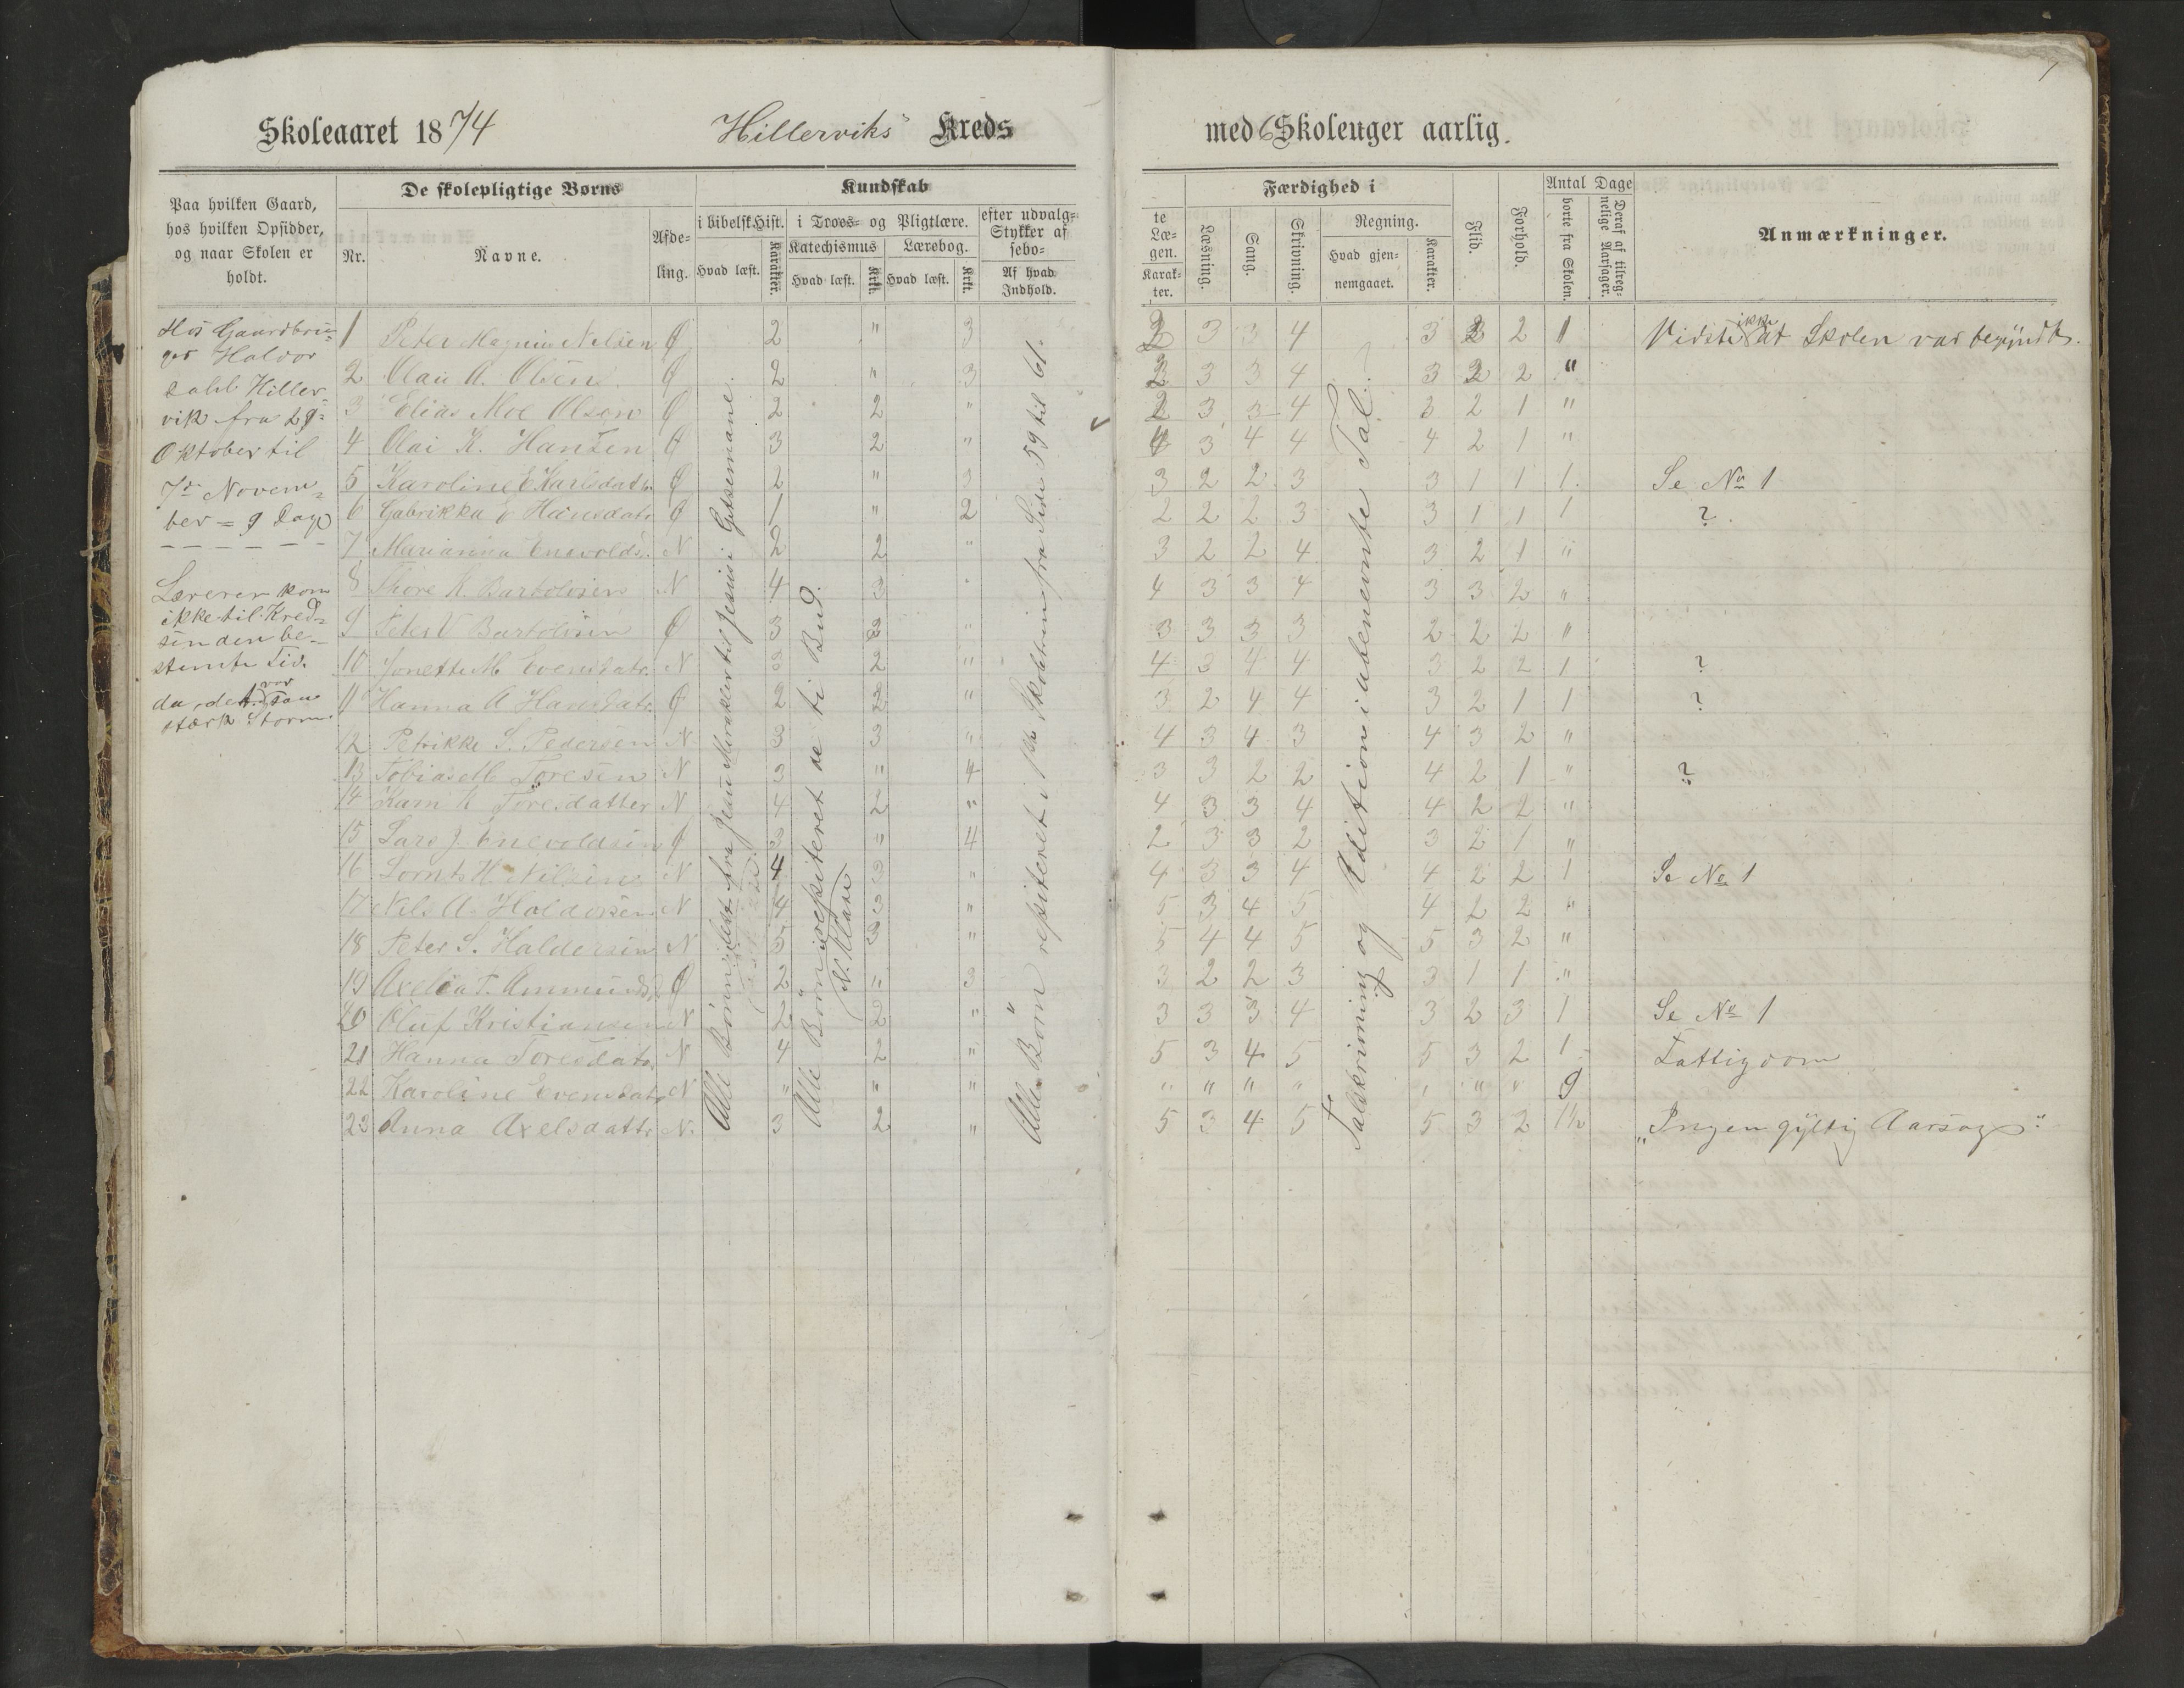 7
Skoleaaret 1874 Hillerviks Kreds med 6 Skoleuger aarlig.
Paa hvilken Gaard, hos hvilken Opsidder, og naar Skolen er holdt.
De skolepligtige Børns
Nr.
Navne.
Afde-
ling.
Kundskab
i bibelsk Hist.
Hvad læst.
Karakter.
i Troes- og Pligtlære.
Katechismus
Hvad læst.
Krkt.
Lærebog.
Hvad læst.
Krkt.
efter udvalg-
Stykker af
sebo-
Af hvad
Indhold.
te
Læ-
gen.
Karak-
ter.
Færdighed i
Læsning.
Sang.
Skrivning.
Regning.
Hvad gjen-
nemgaaet.
Karakter.
Flid.
Forhold.
Antal Dage
borte fra Skolen.
Deraf af tilreg-
nelige Aarsager.
Anmærkninger.
Hos Gaardbru-
ger Haldor
Dahl Hiller-
vik fra 29-
Oktober til
7de Novem-
ber = 9 Dage
Læreren kom
ikke til Kred-
sen den be-
stemte Tid.
da, det var saa
stærk Storm.
1 Peter Magnus Nilsen Ø 2 " 3 3 3 4 3 2 2 1 Vidste ikke at Skolen var begyndt.
2 Olaii A. Olsen Ø 2 " 3 3 3 3 4 3 2 2 "
3 Elias Moe Olsen Ø 2 2 " 2 3 3 4 3 2 1 "
4 Olai K. Hansen Ø 3 2 " 4 3 4 4 4 2 1 "
5 Karoline E Karlsdatr. Ø 2 " 3 3 2 2 3 3 1 1 1 Se No 1
6 Gabrikka Hansdatr Ø 1 " 2 2 2 2 3 3 1 1 1 ?
7 Marianna Enevolds. N 2 2 " 3 2 2 4 3 2 1 "
8 Thore K. Bartolsen N 4 3 " 4 3 3 4 3 3 2 "
9 Peter V Bartolsen Ø 3 3 " 3 3 3 3 2 2 2 "
10 Jonette M Evensdatr. N 3 2 " 4 3 4 4 3 2 2 1 ?
11 Hanna A Hansdatr. Ø 2 2 " 3 2 4 4 3 2 1 1 ?
12 Petrikke S. Pedersen N 3 3 " 4 3 4 3 4 3 2 "
13 Tobias M Toresen N 3 " 4 3 3 2 2 4 2 1 " ?
14 Karn K Toresdatter N 4 2 " 4 3 3 4 4 2 2 "
15 Lars J. Enevoldsen Ø 3 " 4 2 3 3 2 3 2 1 "
16 Lornts H. Nilsen N 4 3 " 4 3 3 4 4 2 2 1 Se No 1
17 Nils A. Haldorsen N 4 3 " 5 3 4 5 4 2 2 "
18 Peter S. Haldersen N 5 3 " 5 4 4 5 5 3 2 "
19 Axelia T. Ammunds. Ø 2 " 3 3 2 2 3 3 1 1 "
20 Oluf Kristiansen N 2 2 " 3 3 3 4 3 2 3 1 Se No 1
21 Hanna Toresdatr. N 4 2 " 5 3 4 5 5 3 2 1 Fattigdom
22 Karoline Evensdatr N " " " " " " " " " " 9
23 Anna Axelsdattr N. 3 2 " 5 3 4 5 5 3 2 1½ "Ingen gyltig Aarsag"
Alle Børn læst fra Jesu Mirakler til Jesus i Getsemane.
Alle Børn repiteret de ti Bud.
N. Klase
Alle Børn repiteret i Skoletrin fra Side 59 til 61.
Talskrivning og Adition i ubenevnte Tal.